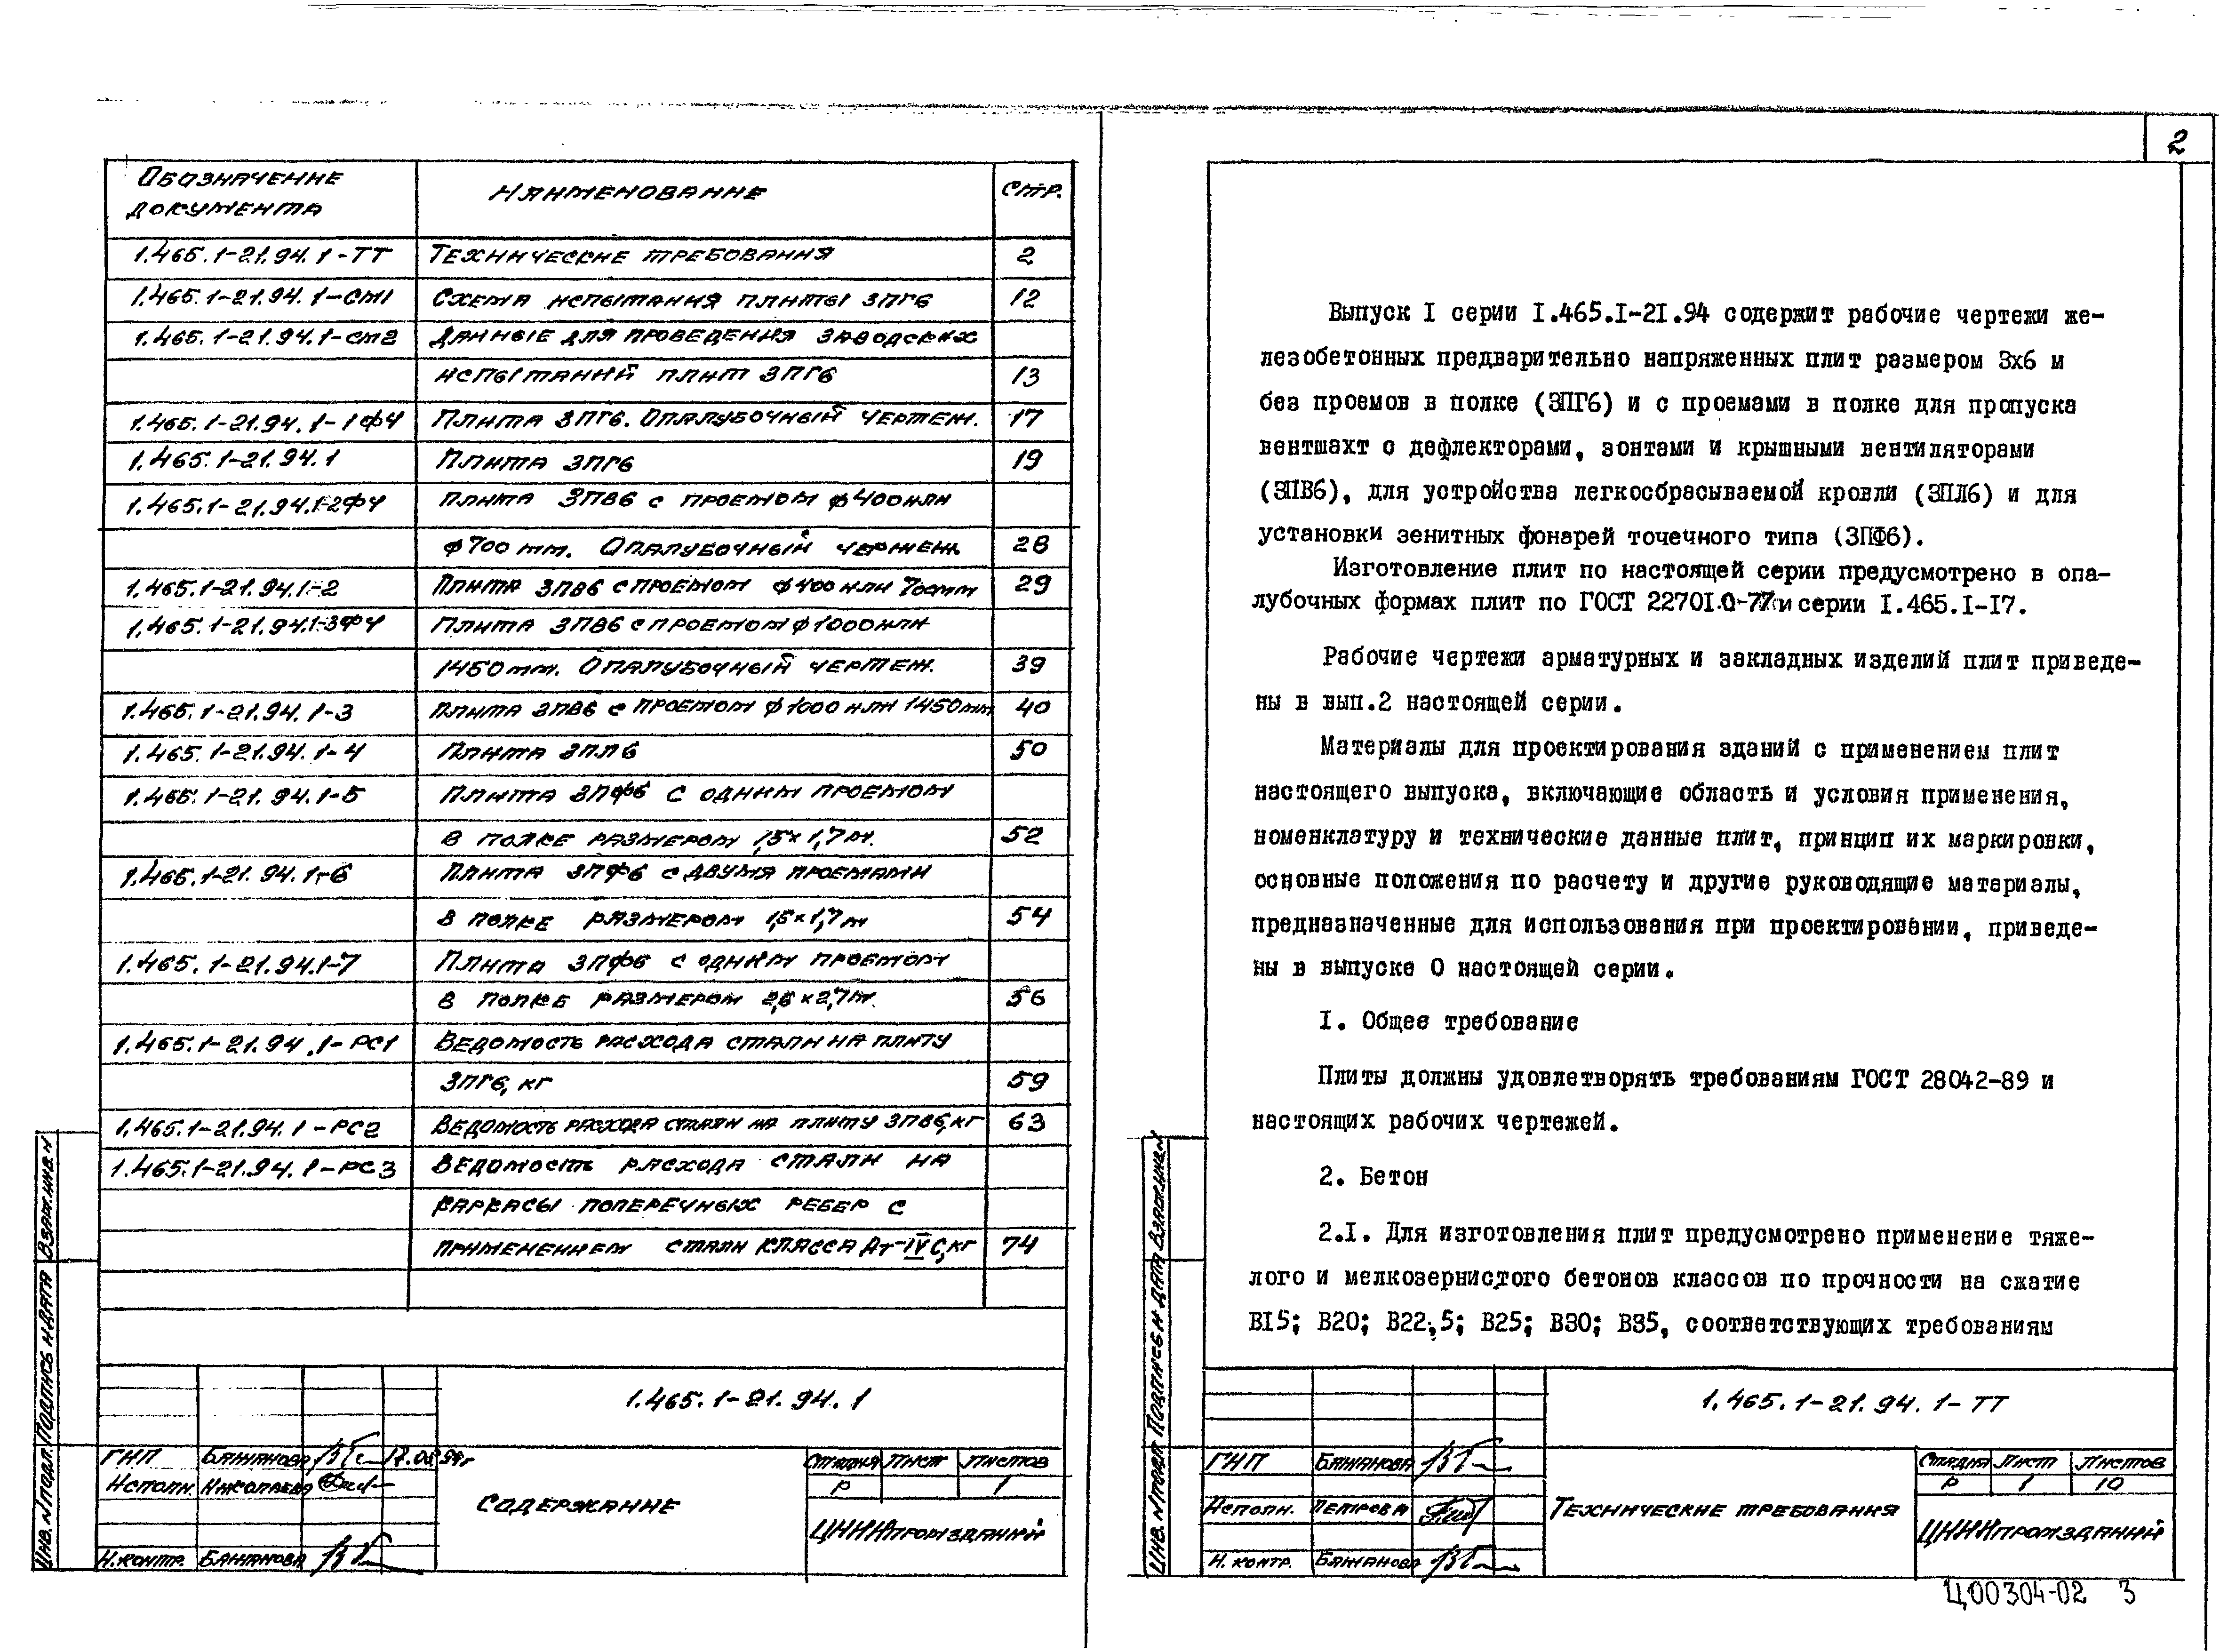 Обозначение документа | Наименование | Стр.
1.465.1-21.94.1-ТТ | Технические требования | 2
1.465.1-21.94.1-СМ1 | Схема испытания плиты 3ПГ6 | 12
1.465.1-21.94.1-СМ2 | Данные для проведения заводских
испытаний плит 3ПГ6 | 13
1.465.1-21.94.1-1ФЧ | Плита 3ПГ6. Опалубочный чертеж. | 17
1.465.1-21.94.1 | Плита 3ПГ6 | 19
1.465.1-21.94.1-2ФЧ | Плита 3ПВ6 с проемом ф400 или
ф700 мм. Опалубочный чертеж | 28
1.465.1-21.94.1-2 | Плита 3ПВ6 с проемом ф400 или 700мм | 29
1.465.1-21.94.1-3ФЧ | Плита 3ПВ6 с проемом ф1000 или
1450 мм. Опалубочный чертеж. | 39
1.465.1-21.94.1-3 | Плита 3ПВ6 с проемом ф1000 или 1450мм | 40
1.465.1-21.94.1-4 | Плита 3ПЛ6 | 50
1.465.1-21.94.1-5 | Плита 3ПФ6 с одним проемом
в полке размером 1,5×1,7м. | 52
1.465.1-21.94.1-6 | Плита 3ПФ6 с двумя проемами
в полке размером 1,5×1,7м | 54
1.465.1-21.94.1-7 | Плита 3ПФ6 с одним проемом
в полке размером 2,6×2,7м. | 56
1.465.1-21.94.1-РС1 | Ведомость расхода стали на плиту
3ПГ6, кг | 59
1.465.1-21.94.1-РС2 | Ведомость расхода стали на плиту 3ПВ6, кг | 63
1.465.1-21.94.1-РС3 | Ведомость расхода стали на
каркасы поперечных ребер с
применением стали класса Ат-IVС, кг | 74
Инв. № подл. Подпись и дата Взам. инв. №
1.465.1-21.94.1
ГИП Бажанова 17.08.94г
Исполн. Николаева
Н. контр. Бажанова
Содержание
Стадия Лист Листов
Р 1
ЦНИИпромзданий
2
Выпуск I серии I.465.I-2I.94 содержит рабочие чертежи же-
лезобетонных предварительно напряженных плит размером 3х6 м
без проемов в полке (3ПГ6) и с проемами в полке для пропуска
вентшахт с дефлекторами, зонтами и крышными вентиляторами
(3ПВ6), для устройства легкосбрасываемой кровли (3ПЛ6) и для
установки зенитных фонарей точечного типа (3ПФ6).
Изготовление плит по настоящей серии предусмотрено в опа-
лубочных формах плит по ГОСТ 2270I.0-77 и серии I.465.I-I7.
Рабочие чертежи арматурных и закладных изделий плит приведе-
ны в вып.2 настоящей серии.
Материалы для проектирования зданий с применением плит
настоящего выпуска, включающие область и условия применения,
номенклатуру и технические данные плит, принцип их маркировки,
основные положения по расчету и другие руководящие материалы,
предназначенные для использования при проектировании, приведе-
ны в выпуске 0 настоящей серии.
I. Общее требование
Плиты должны удовлетворять требованиям ГОСТ 28042-89 и
настоящих рабочих чертежей.
2. Бетон
2.I. Для изготовления плит предусмотрено применение тяже-
лого и мелкозернистого бетонов классов по прочности на сжатие
ВI5; В20; В22,5; В25; В30; В35, соответствующих требованиям
Инв. № подл. Подпись и дата Взам. инв. №
1.465.1-21.94.1-ТТ
ГИП Бажанова
Исполн. Петрова
Н. контр. Бажанова
Технические требования
Стадия Лист Листов
Р 1 10
ЦНИИпромзданий
Ц00304-02 3